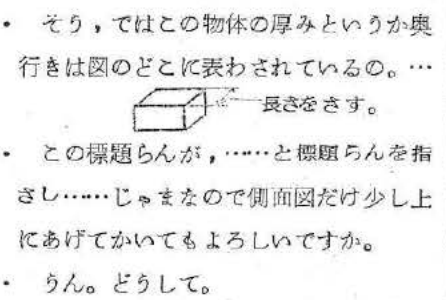 ・ そう，ではこの物体の厚みというか奥
行きは図のどこに表わされているの。…
長さをさす。
・ この標題らんが，……と標題らんを指
さし……じゃまなので側面図だけ少し上
にあげてかいてもよろしいですか。
・ うん。どうして。